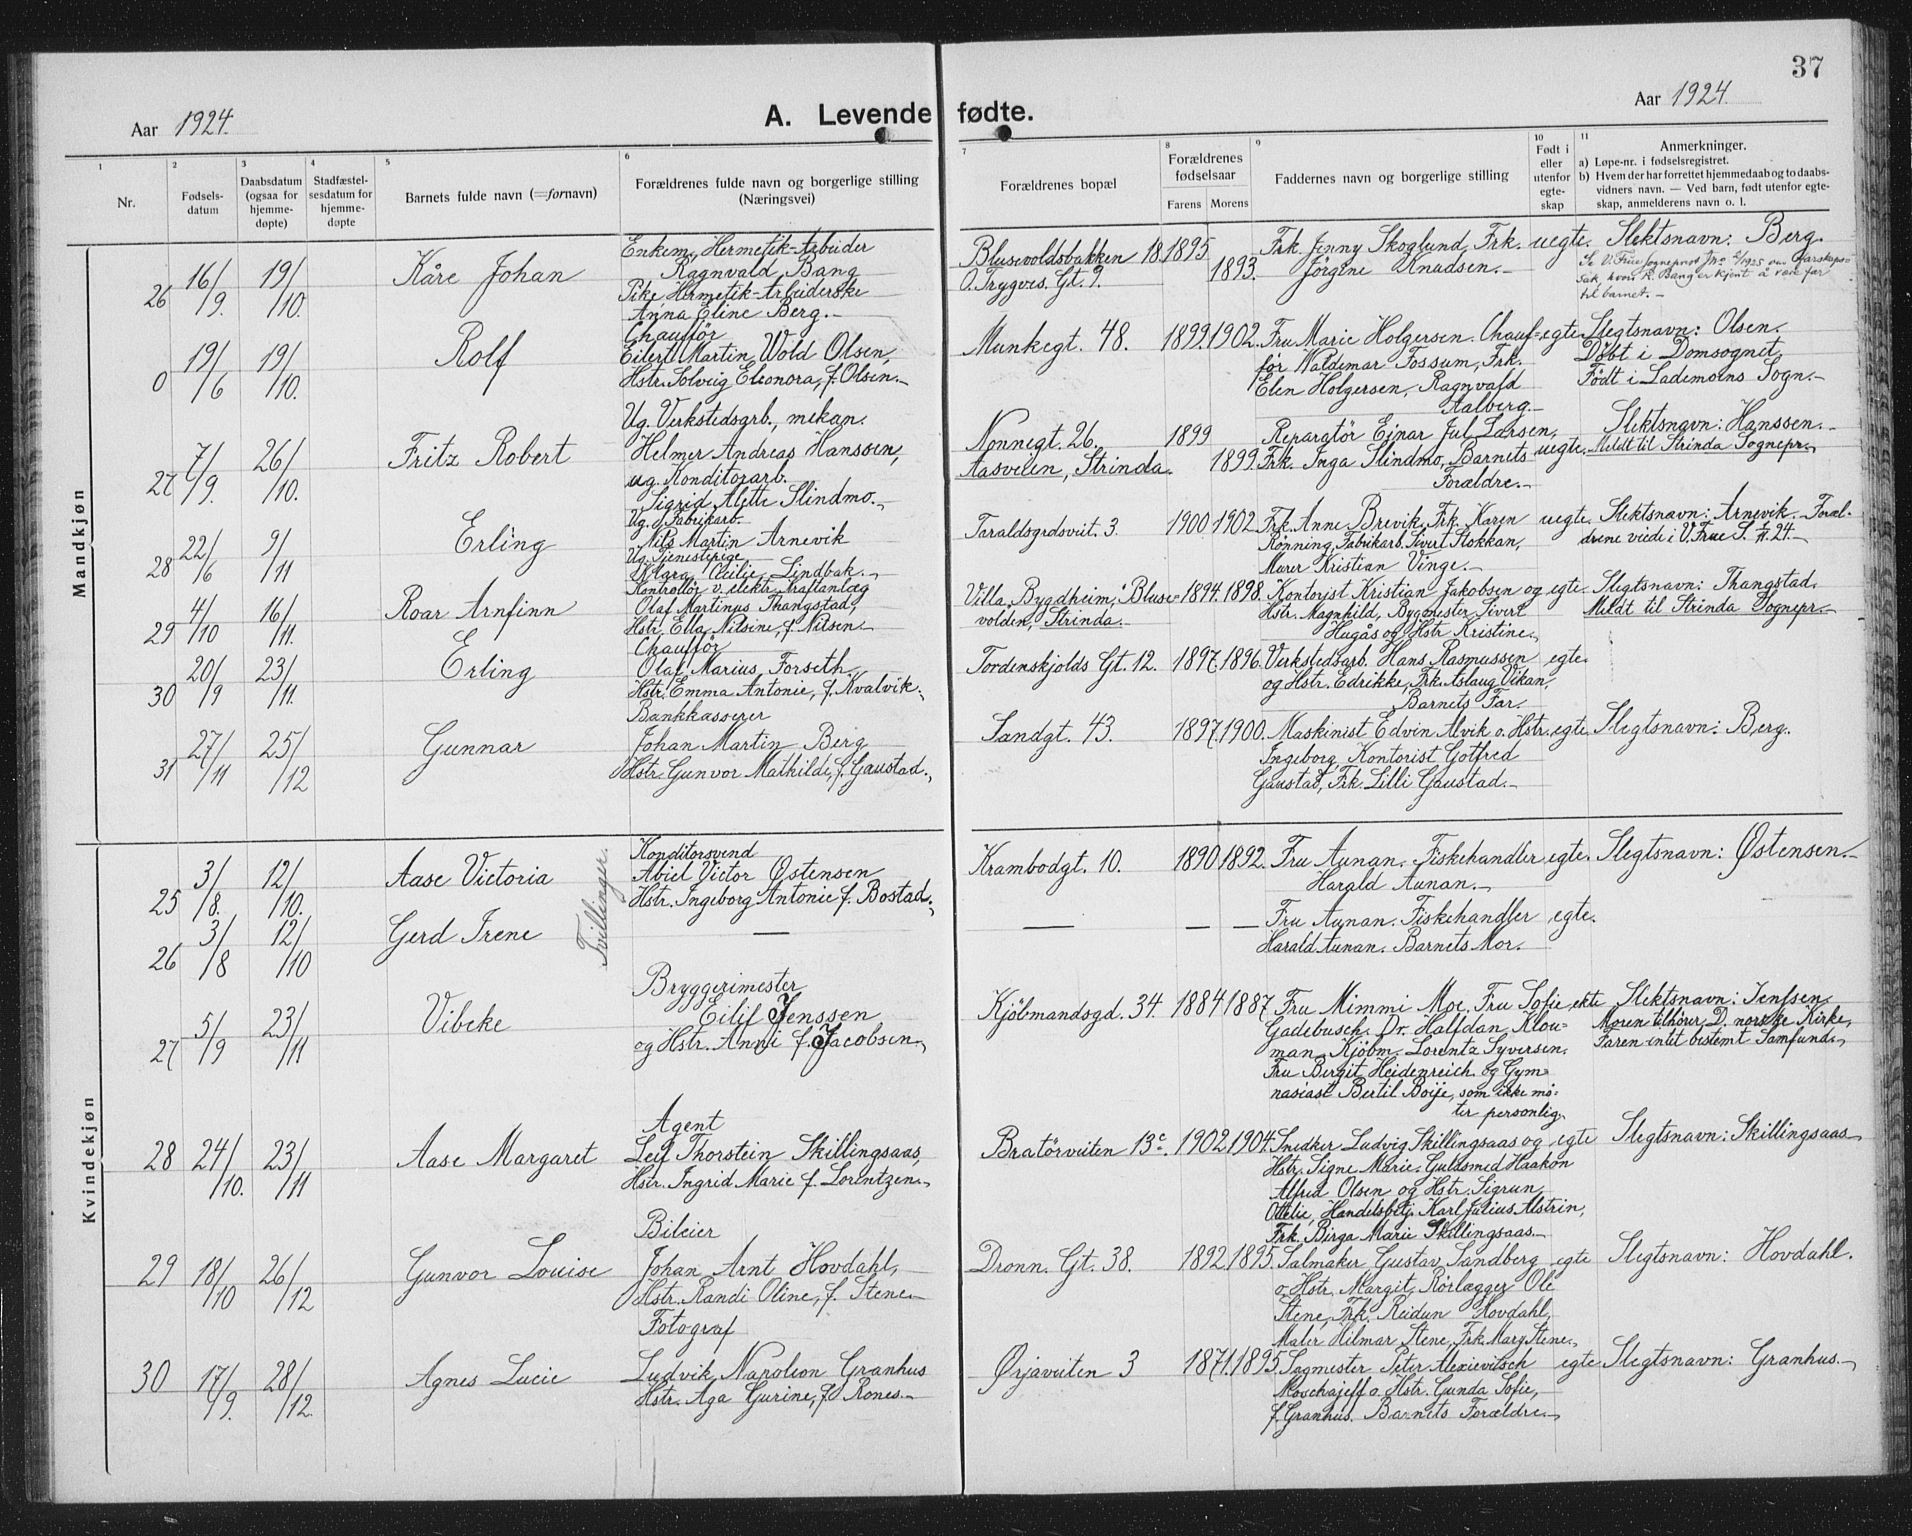 37
Aar 1924.
A. Levende fødte.
Aar 1924.
1 2 3 4 5 6 7 8 9 10 11
Nr.
Fødsels-
datum
Daabsdatum
(ogsaa for
hjemme-
døpte)
Stadfæstel-
sesdatum for
hjemme-
døpte
Barnets fulde navn (=fornavn)
Forældrenes fulde navn og borgerlige stilling
(Næringsvei)
Forældrenes bopæl
Forældrenes
fødselsaar
Farens Morens
Faddernes navn og borgerlige stilling
Født i
eller
utenfor
egte-
skap
Anmerkninger.
a) Løpe-nr. i fødselsregistret.
b) Hvem der har forrettet hjemmedaab og to daabs-
vidners navn. — Ved barn, født utenfor egte-
skap, anmelderens navn o. l.
Mandkjøn
26 16/9. 19/10. Kåre Johan
Enkem. Hermetik-Arbeider
Ragnvald Bang
Pike Hermetik-Arbeiderske
Anna Eline Berg.-
Blusevoldsbakken 18. 1895
O. Trygves. Gt. 9. 1893.
Frk. Jenny Skoglund, Frk.
Jörgine Knudsen.-
uegte.
Slektsnavn: Berg.
sak, hvor R. Bang er kjent å være far
til barnet.-
0 19/6 19/10. Rolf
Chaufför
Eilert Martin Wold Olsen,
Hstr. Solveig Eleonora, f. Olsen.-
Munkegt. 48. 1899. 1902.
Fru Marie Holgersen. Chauf-
för Waldemar Fossum, Frk.
Elen Holgersen, Ragnvald
Aalberg.-
egte.
Slegtsnavn: Olsen.
Döbt i Domsognet,
Födt i Lademoens Sogn.-
27 7/9. 26/10. Fritz Robert
Ug. Verkstedsarb., mekan.
Helmer Andreas Hanssen,
ug. Konditorarb.
Sigrid Alette Slindmo.-
Nonnegt. 26. 1899
Aasveien, Strinda. 1899
Reparatör Ejnar Jul Larsen,
Frk. Inga Slindmo, Barnets
Forældre.-
uegte.
Slektsnavn: Hanssen.-
Meldt til Strinda Sognepr.
28 22/6 9/11 Erling
Ug. Fabrikarb.
Nils Martin Arnevik
Ug. Tjenestepige
Klara Cecilie Lindbak.-
Taraldsgardsveit. 3. 1900 1902
Frk. Anne Brevik, Frk. Karen
Rönning, Fabrikarb. Sivert Stokkan,
Murer Kristian Vinge.-
uegte.
Slektsnavn: Arnevik. Foræl-
drene viede i V. Frue S.
29 4/10 16/11. Roar Arnfinn
Kontrollör v. elektr. Kraftanlæg
Olaf Martinus Thangstad,
Hstr. Ella Nilsine, f. Nilsen.-
Villa „Bygdheim," Bluse- 1894. 1898.
volden, Strinda.-
Kontorist Kristian Jakobsen og
Hstr. Magnhild, Bygmester Sivert
Hugås og Hstr Kristine.
egte.
Slegtsnavn: Thangstad.
Meldt til Strinda Sognepr.-
30 20/9 23/11. Erling
Chaufför
Olaf Marius Forseth.
Hstr. Emma Antonie, f. Kvalvik.
Tordenskjolds Gt. 12. 1897. 1896.
Verkstedsarb. Hans Rasmussen
og Hstr. Edrikke, Frk. Aslaug Vikan,
Barnets Far.
egte.
31 27/11 25/12 Gunnar
Bankkasserer
Johan Martin Berg
Hstr. Gunvor Mathilde, f. Gaustad.
Sandgt. 43. 1897. 1900.
Maskinist Edvin Alvik o. Hstr.
Ingeborg, Kontorist Gotfred
Gaustad, Frk. Lilli Gaustad.-
egte.
Slegtsnavn: Berg.
Kvindekjøn
25 3/8. 12/10. Aase Victoria
Tvillinger.
Konditorsvend
Abiel Victor Østensen
Hstr. Ingeborg Antonie f. Bostad.
Krambodgt. 10. 1890. 1892.
Fru Aunan. Fiskehandler
Harald Aunan.-
egte.
Slegtsnavn: Østensen.-
26 3/8 12/10 Gerd Irene
— — — —
Fru Aunan. Fiskehandler
Harald Aunan. Barnets Mor.
egte.
27 5/9 23/11 Vibeke
Bryggerimester
Eilif Jenssen
og Hstr. Anni f. Jacobsen
Kjöbmandsgd. 34. 1884 1887
Fru Mimmi Moe, Fru Sofie
Gadebusch. Dr. Halfdan Klou-
man. Kjöbm. Lorentz Syversen.
Fru Bergit Heidenreich og Gym-
nasiast Bertil Boije, som ikke mö-
ter personlig.
ekte
Slektsnavn: Jenssen.
Moren tilhörer D. norske Kirke,
Faren intet bestemt Samfund.
28 24/10. 23/11 Aase Margaret
Agent
Leif Thorstein Skillingsaas,
Hstr. Ingrid Marie f. Lorentzen.
Bratörveiten 13c. 1902 1904.
Snedker Ludvig Skillingsaas og
Hstr. Signe Marie. Guldsmed Haakon
Alfred Olsen og Hstr. Sigrun
Ottelie, Handelsbetj. Karl Julius Alstrin,
Frk. Birga Marie Skillingsaas.-
egte
Slegtsnavn: Skillingsaas
29 18/10 26/12 Gunvor Louise
Bileier
Johan Arnt Hovdahl,
Hstr. Randi Oline, f. Stene.
Dronn. Gt. 38. 1892. 1895.
Salmaker Gustav Sandberg
o. Hstr. Margit, Rörlægger Ole
Stene, Frk. Reidun Hovdahl,
Maler Hilmar Stene, Frk. Mary Stene.
egte
Slegtsnavn: Hovdahl.
30 17/9. 28/12. Agnes Lucie
Fotograf
Ludvik Napoleon Granhus
Hstr. Aga Gurine, f. Rones.-
Örjaveiten 3 1871. 1895.
Sagmester Peter Alexievitsch
Moschajeff o. Hstr. Gunda Sofie,
f. Granhus. Barnets Forældre.
egte
Slegtsnavn: Granhus.-